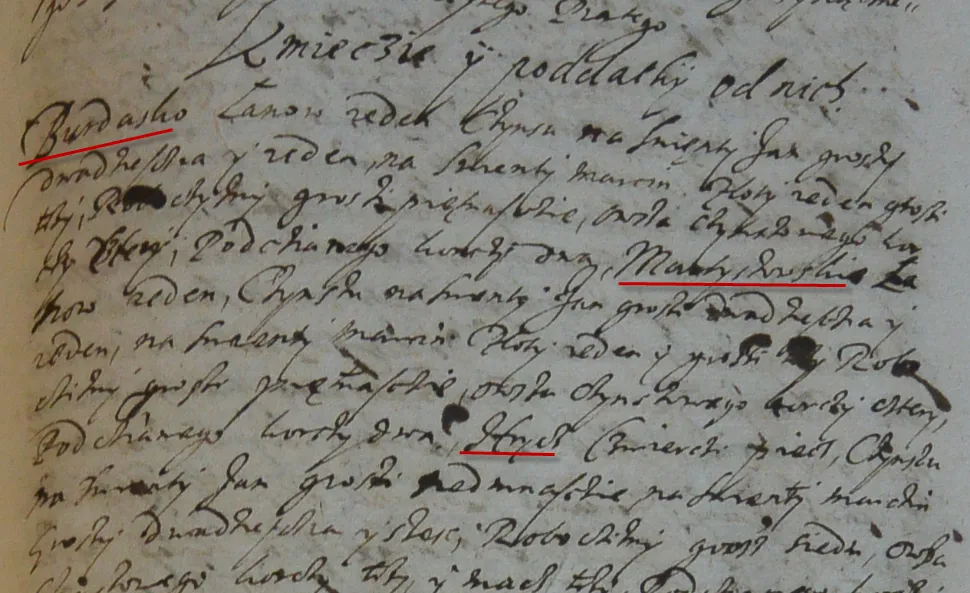 Kmieczie y poddathy od nich
Burdasko Łanow ieden Czynsu na Swięnty Jan groszy
dwadziescia y ieden, na Swienty Marcin Złoty ieden groszi
trzy, Robochizny groszi piętnascie, owsa czynszowego kor
Podchianego korczy dwa, Martyskowskie Ła
now ieden, Czynszu na Swienty Jan groszi dwadziescia y
ieden, na Swienty Marcin Złoty ieden y groszi trzy Robo
cizny groszi piętnascie, owsa czynszowego korczy cztery,
Podchianego korczy dwa, Hryc Czwierci pięć, Czynszu
na Swienty Jan groszi siedmnascie na Swienty Marcin
groszy dwadziescia y szesc, Robocizny groszi siedm, owsa
korczy trzy, y trzy